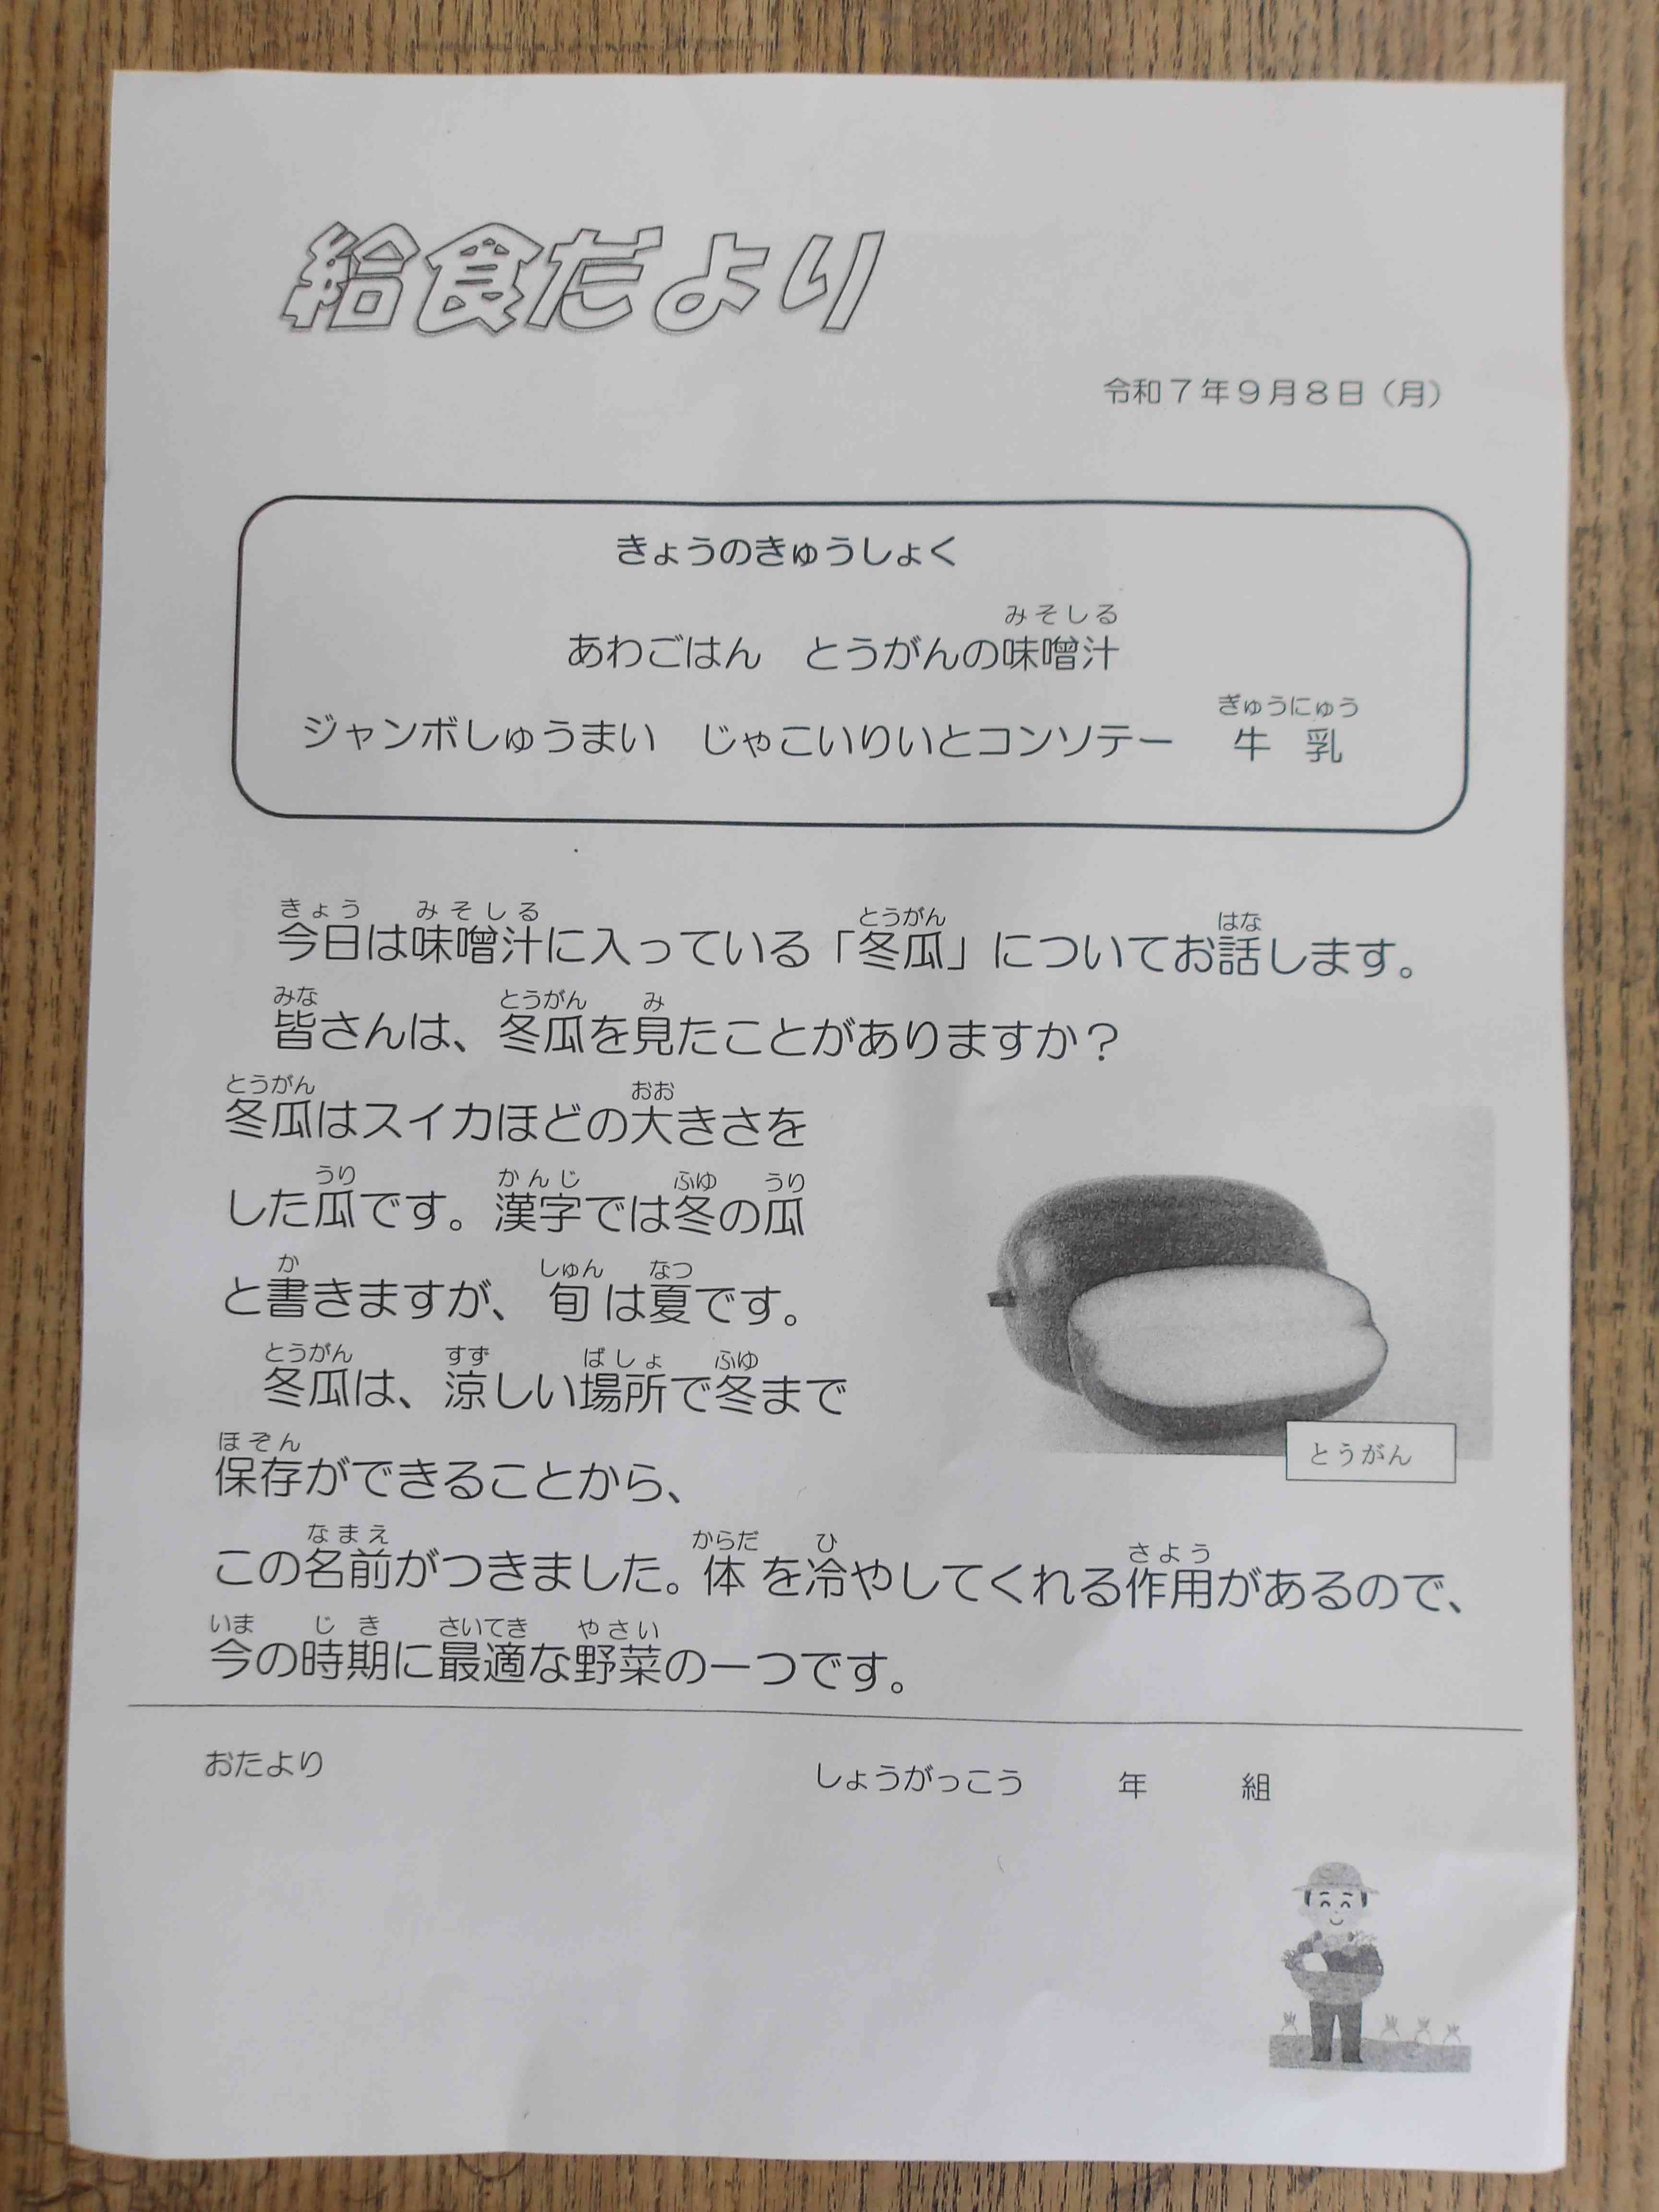 給食だより
令和７年９月８日（月）
きょうのきゅうしょく
みそしる
あわごはん　とうがんの味噌汁
ぎゅうにゅう
ジャンボしゅうまい　じゃこいりいとコンソテー　牛　乳
きょう　みそしる　とうがん　はな
今日は味噌汁に入っている「冬瓜」についてお話します。
みな　とうがん　み
皆さんは、冬瓜を見たことがありますか？
とうがん　おお
冬瓜はスイカほどの大きさを
うり　かんじ　ふゆ　うり
した瓜です。漢字では冬の瓜
か　しゅん　なつ
と書きますが、旬は夏です。
とうがん　すず　ばしょ　ふゆ
冬瓜は、涼しい場所で冬まで
ほぞん
保存ができることから、
とうがん
なまえ　からだ　ひ　さよう
この名前がつきました。体を冷やしてくれる作用があるので、
いま　じき　さいてき　やさい
今の時期に最適な野菜の一つです。
おたより　しょうがっこう　年　組